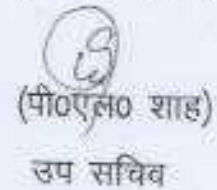 (पी0एल0 शाह)
उप सचिव